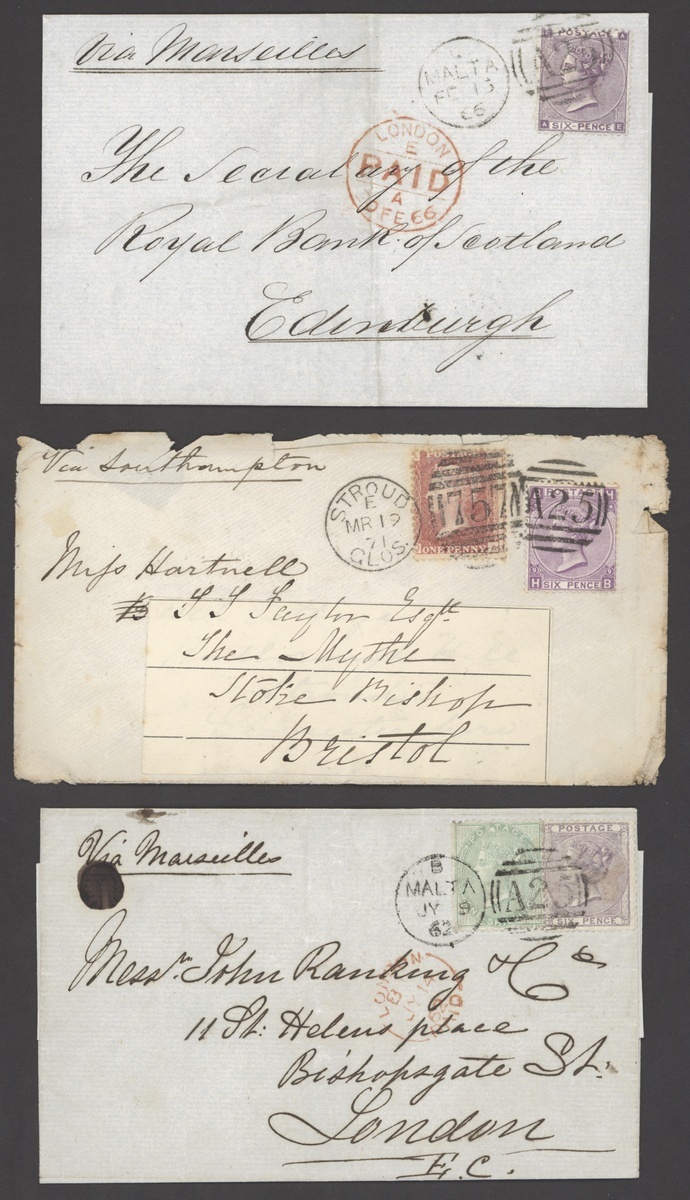 Via Marseilles
MALTA
FE 15
66
A25
POSTAGE
SIX-PENCE
LONDON
E
PAID
A
FE 66
The Secretary of the
Royal Bank of Scotland
Edinburgh
Via Southampton
STROUD
E
MR 19
71
GLOS.
757
ONE PENNY
A25
H SIX PENCE B
Miss Hartnell
Esqre
The Mythe
Stoke Bishop
Bristol
Via Marseilles
B
MALTA
JY
62
A25
POSTAGE
POSTAGE
SIX PENCE
LONDON
Messrs John Ranking & Co
11 St: Helens place
Bishopsgate St.
London
E.C.